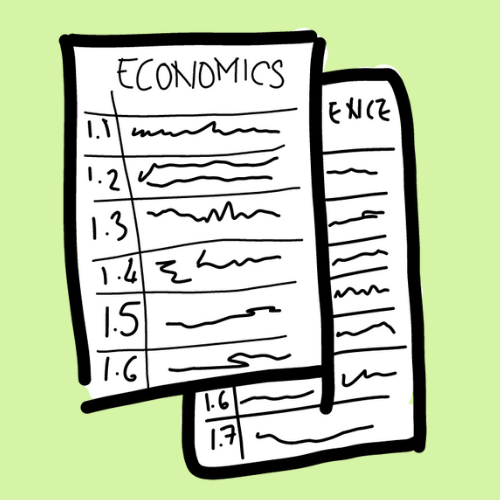 ECONOMICS
1.1
1.2
1.3
1.4
1.5
1.6
ENCE
1.6
1.7